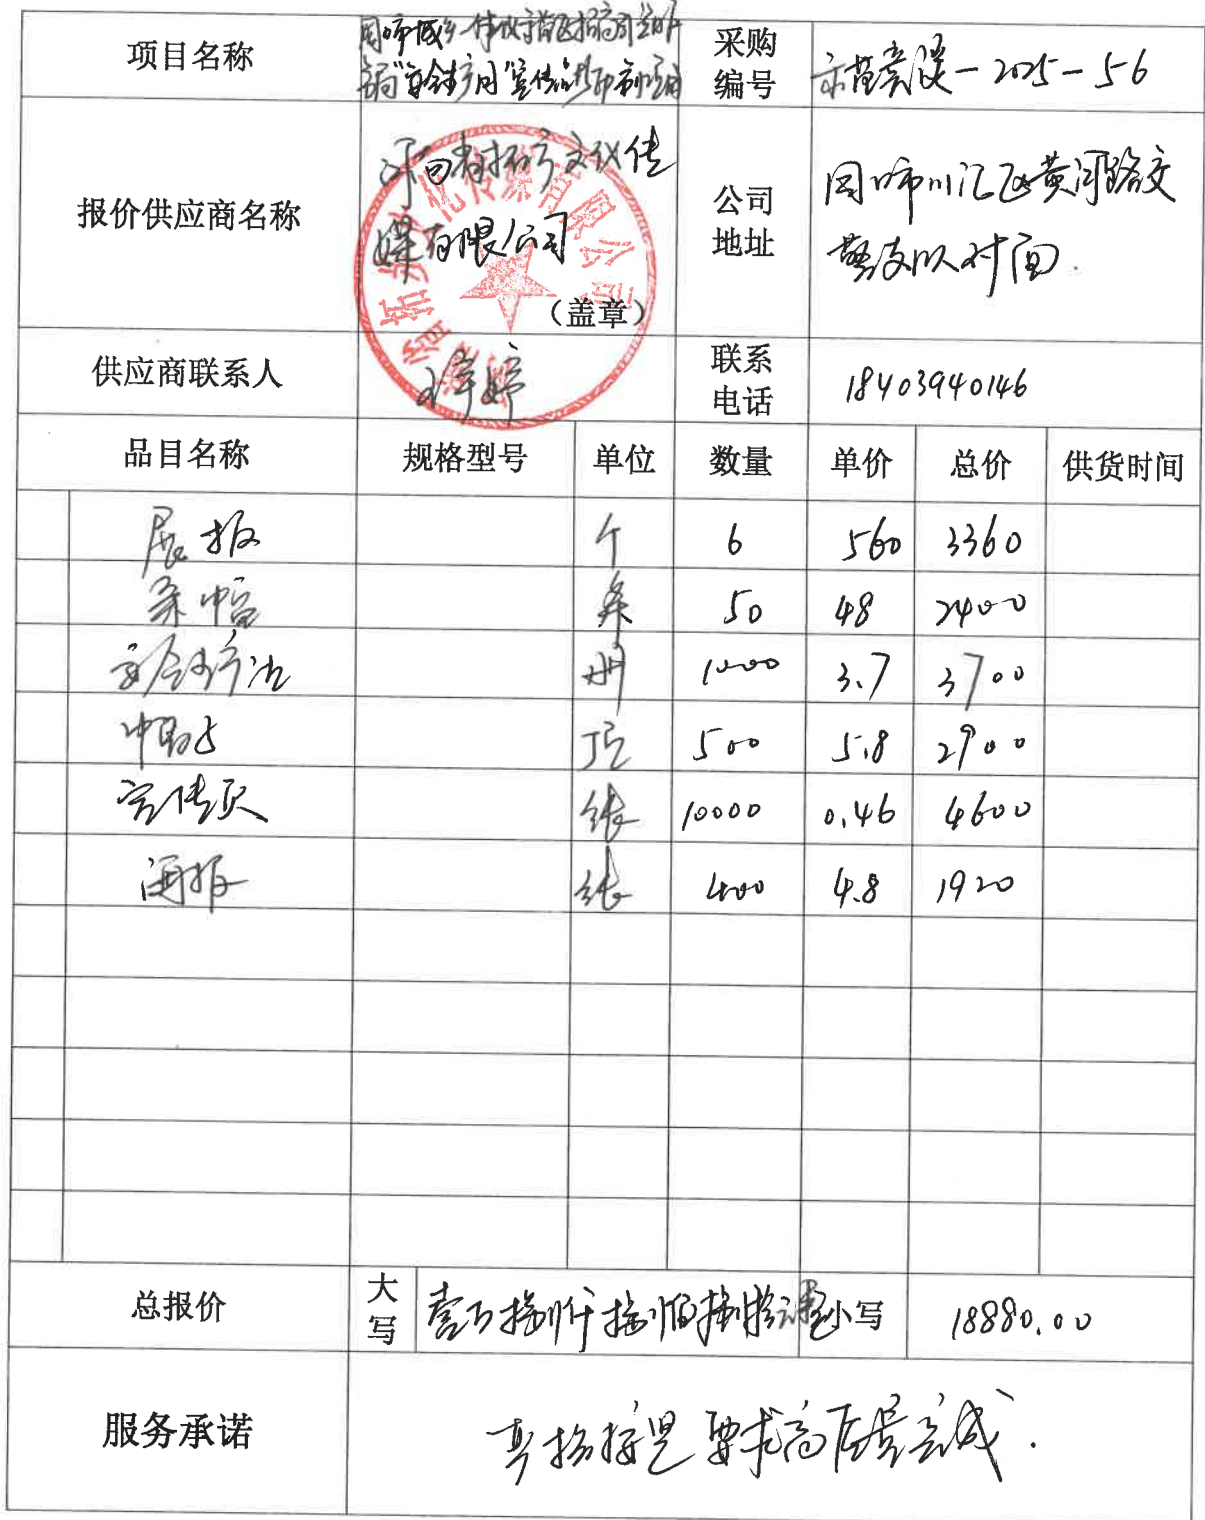 项目名称
采购
编号
-2025-56
报价供应商名称
河南省拓步文化传
媒有限公司
(盖章)
公司
地址
周口市川汇区黄河路交
警支队对面.
供应商联系人
婷
联系
电话
18403940146
品目名称 规格型号 单位 数量 单价 总价 供货时间
展板 个 6 560 3360
条幅 条 50 48 2400
安全生产法 册 1000 3.7 3700
帽子 顶 500 5.8 2900
宣传页 张 10000 0.46 4600
海报 张 400 4.8 1920
总报价
大
写
壹万捌仟捌佰捌拾元整
小写
18880.00
服务承诺
严格按照要求高质量完成.